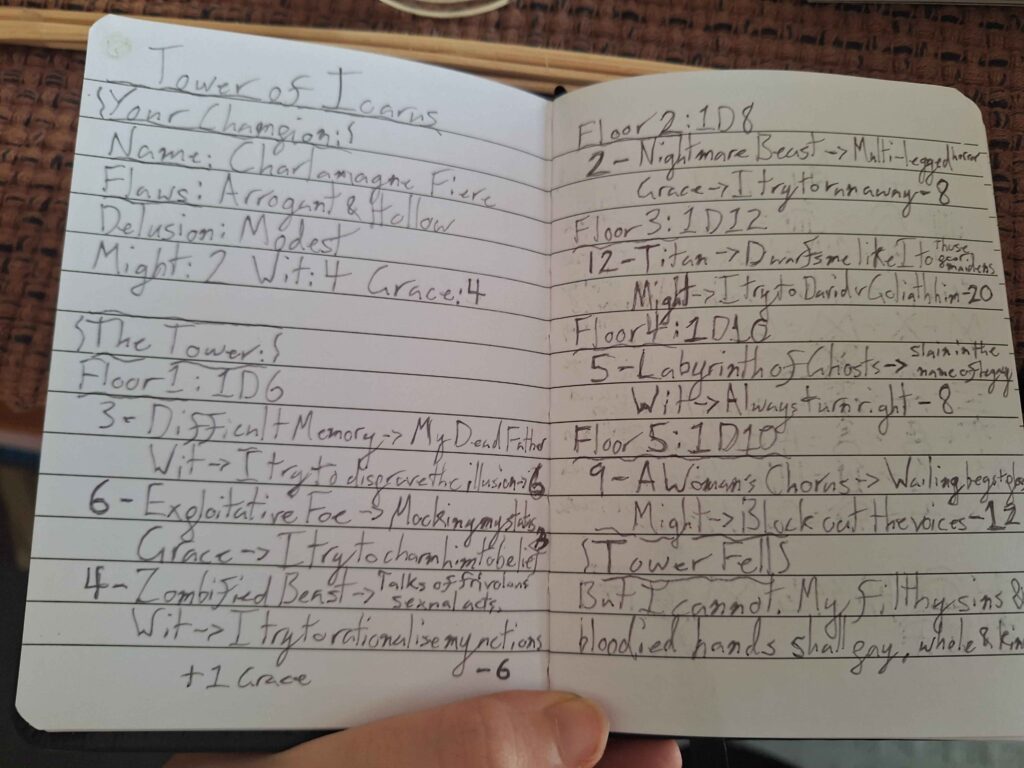 Tower of Icarus
{Your Champion:}
Name: Charlamagne Fiere
Flaws: Arrogant & Hollow
Delusion: Modest
Might: 2 Wit: 4 Grace: 4
{The Tower:}
Floor 1: 1D6
3 - Difficult Memory -> My Dead Father
Wit -> I try to disprove the illusion -> 6
6 - Exploitative Foe -> Mocking my status
Grace -> I try to charm him to belief
4 - Zombified Beast -> Talks of frivolous sexual acts.
Wit -> I try to rationalise my actions
+1 Grace -6
Floor 2: 1D8
2 - Nightmare Beast -> Multi-legged horror
Grace -> I try to run away - 8
Floor 3: 1D12
12 - Titan -> Dwarfs me like I to those maidens
Might -> I try to David v Goliath him - 20
Floor 4: 1D10
5 - Labyrinth of Ghosts -> slain in the name of
Wit -> Always turn right - 8
Floor 5: 1D10
9 - A Woman's Chorus -> Wailing
Might -> Block out the voices - 12
{Tower Fell}
But I cannot. My filthy sins &
bloodied hands shall pay, whole &